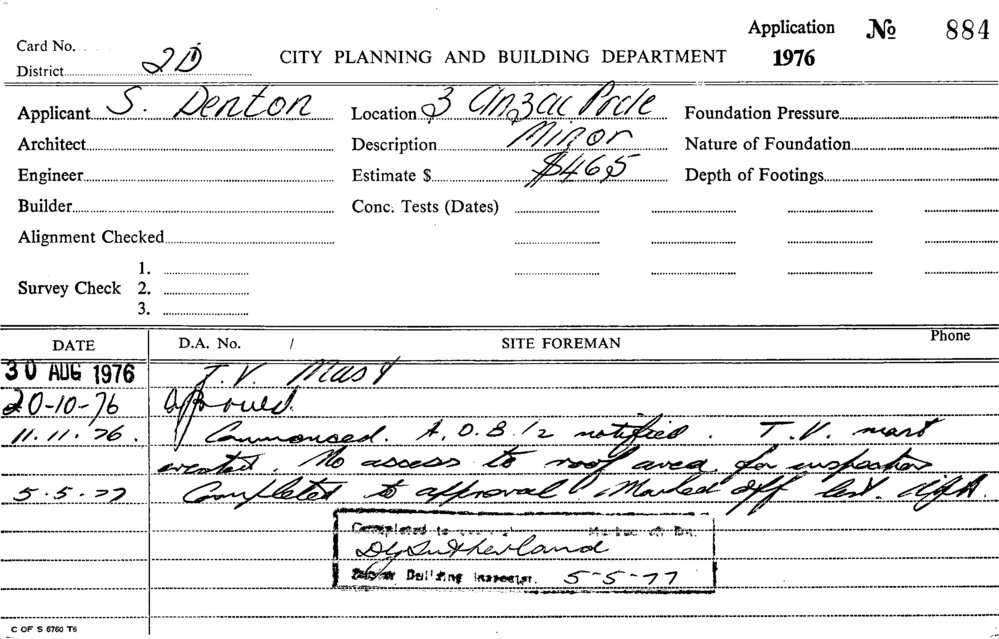 Application № 884
Card No.
1976
District 2D
CITY PLANNING AND BUILDING DEPARTMENT
Applicant S. Denton Location 3 Anzac Pde Foundation Pressure
Architect Description Minor Nature of Foundation
Engineer Estimate $ $465 Depth of Footings
Builder Conc. Tests (Dates)
Alignment Checked
1.
Survey Check 2.
3.
DATE D.A. No. / SITE FOREMAN Phone
30 AUG 1976 T.V. Mast
20-10-76 approved.
11.11.76. Commenced. A.O.B. 1/2 notified. T.V. mast
erected. No access to roof area for inspection
5.5.77 Completed to approval Marked off
Completed to
DySutherland
Building Inspector. 5-5-77
C OF S 6760 T6